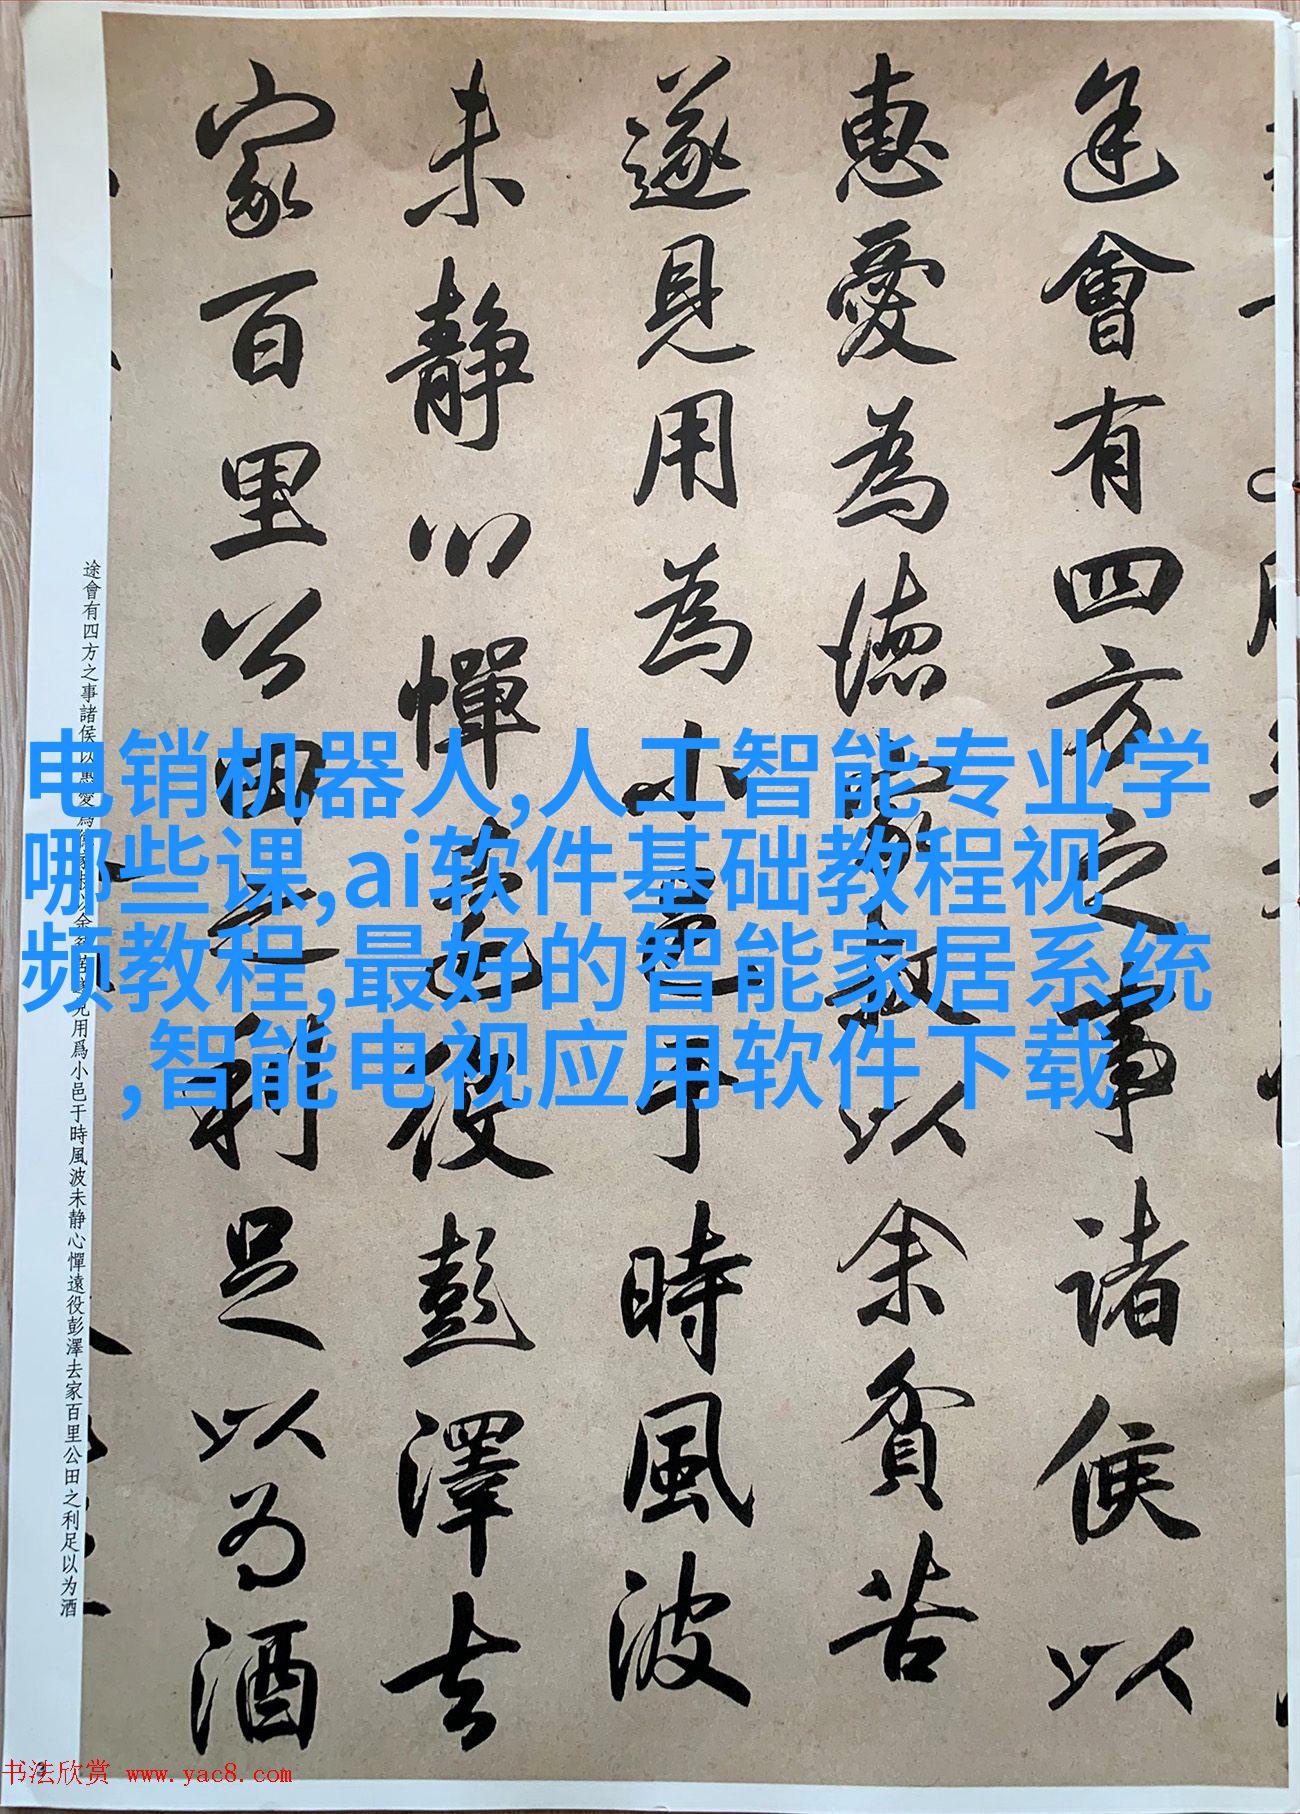 途會有四方之事諸侯以
惠愛為德家叔以余貧苦
遂見用為小邑于時風波
未靜心憚遠役彭澤去
家百里公田之利足以為酒
电销机器人,人工智能专业学
哪些课,ai软件基础教程视
频教程,最好的智能家居系统
,智能电视应用软件下载
途會有四方之事諸侯以惠愛爲德家叔以余貧苦遂見用爲小邑于時風波未静心憚遠役彭澤去家百里公田之利足以为酒
书法欣赏 www.yac8.com